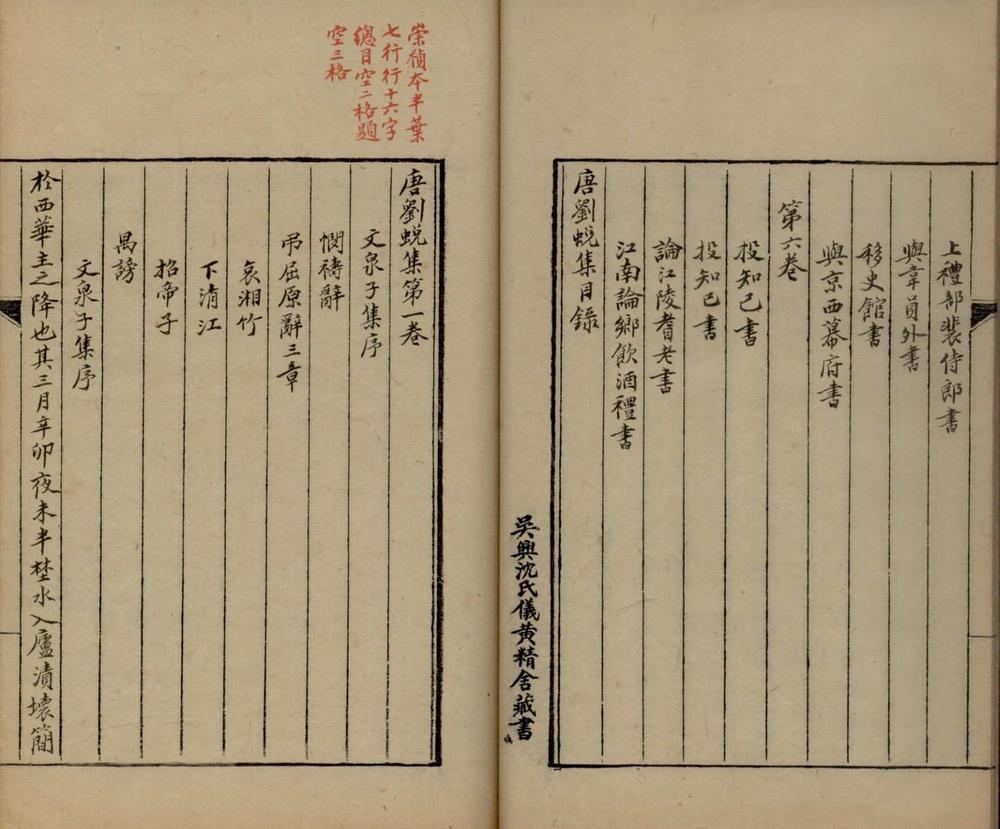 上禮部裴侍郎書
與韋員外書
移史館書
與京西幕府書
第六卷
投知己書
投知己書
論江陵耆老書
江南論鄉飲酒禮書
唐劉蛻集目錄
吳興沈氏儀黃精舍藏書
崇禎本半葉
七行行十六字
總目空二格題
空三格
唐劉蛻集第一卷
文泉子集序
憫禱辭
弔屈原辭三章
哀湘竹
下清江
招帝子
禺謗
文泉子集序
於西華主之降也其三月辛卯夜未半埜水入廬漬壞簡